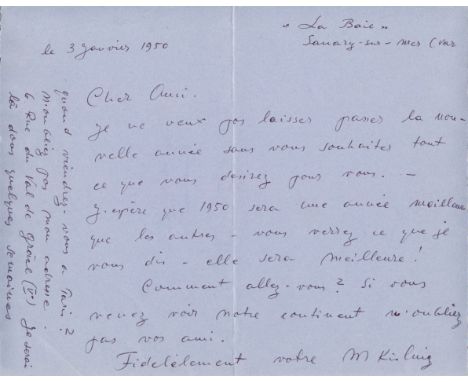 " La Baie "
Sanary-sur-mer (Var
le 3 Janvier 1950
Cher Ami.
Je ne veux pas laisser passer la nou-
velle année sans vous souhaiter tout
ce que vous desirez pour vous. -
J'espère que 1950 sera une année meilleure
que les autres - vous verrez ce que je
vous dis - elle sera meilleure!
Comment allez-vous? Si vous
venez voir notre continent n'oubliez
pas vos ami.
Fidelèlement votre M Kisling
quand viendrez-vous à Paris?
N'oubliez pas mon adresse:
6 Rue du Val de Grâce (Ve) Je serai
là dans quelques semaines